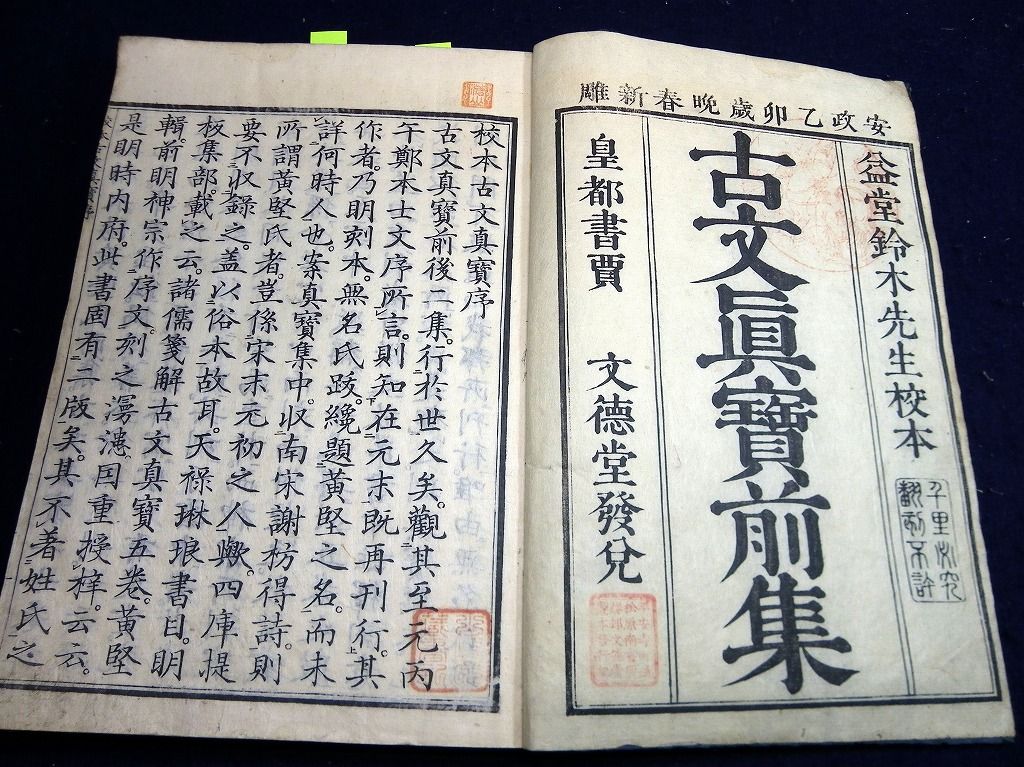 安政乙卯歲晚春新雕
益堂鈴木先生校本
古文眞寶前集
皇都書賈　文德堂發兌
千里必究
翻刻不許
校本古文真寶序
古文真寶前後二集。行於世久矣。觀其至元丙
午鄭本士文序所言。則知在元末既再刊行。其
作者。乃明刻本。無名氏跋。纔題黃堅之名。而未
詳何時人也。案真寶集中。收南宋謝枋得詩。則
所謂黃堅氏者。豈係宋末元初之人歟。四庫提
要不收錄之。蓋以俗本故耳。天祿琳琅書目。明
板集部。載之云。諸儒箋解古文真寶五卷。黃堅
輯。前明神宗作序文。刻之漫漶因重授梓。云云。
是明時內府。此書固有二版矣。其不著姓氏之